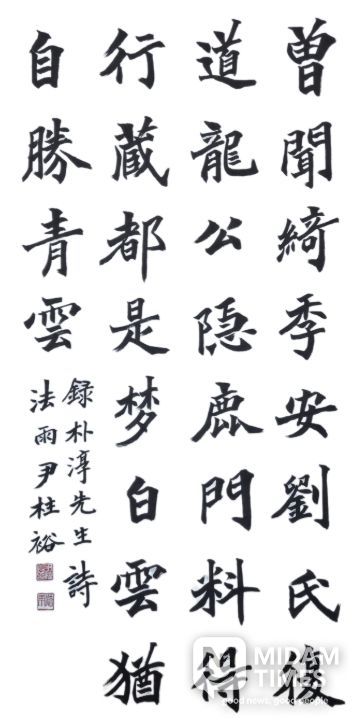 曾聞綺季安劉氏後
道龍公隱鹿門料得
行蔵都是梦白雲猶
自勝青雲
録朴淳先生詩
法雨尹柱裕
MIDAM
TIMES
good news, good people